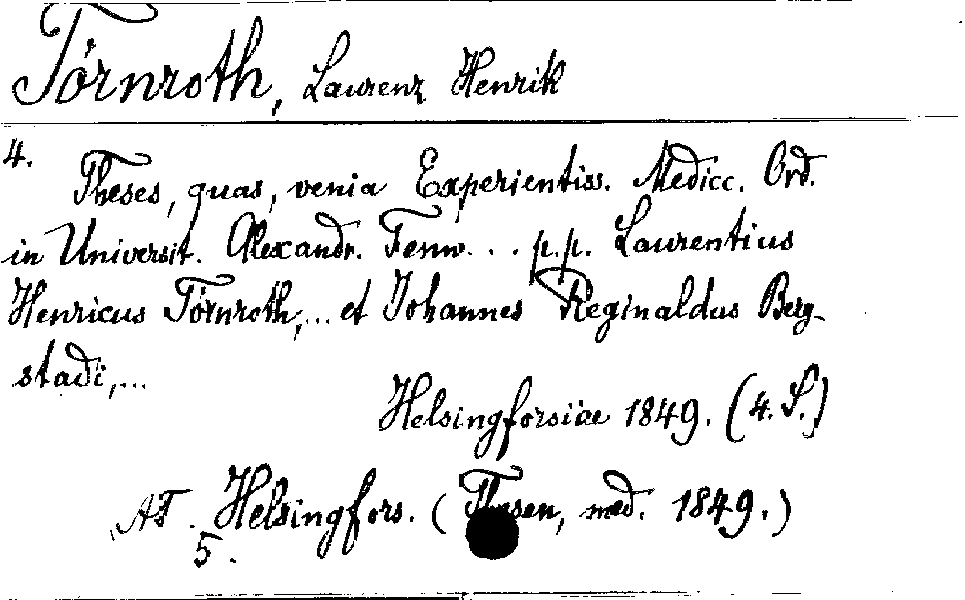 Törnroth, Laurenz Henrik
4.
Theses, quas, venia Experientiss. Medicc. Ord.
in Universit. Alexandr. Fenn. . . p. p. Laurentius
Henricus Törnroth,... et Johannes Reginaldus Berg-
stadi,...
Helsingforsiae 1849. (4. S.)
AT. Helsingfors. (Thesen, med. 1849.)
5.